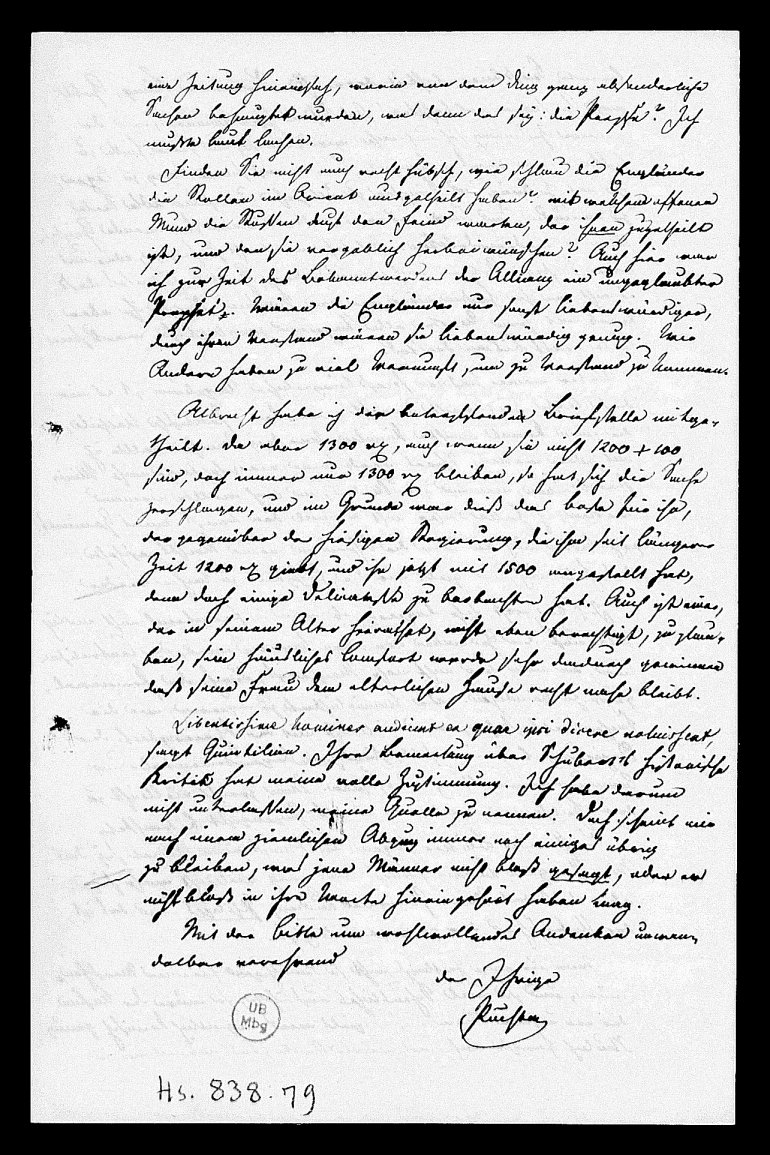 eine Zeitung hineinsah, worin von dem Ding ganz absonderliche
Sachen behauptet wurden, was denn das sey: die Presse? Ich
mußte laut lachen.
Finden Sie nicht auch recht hübsch, wie schlau die Engländer
die Rollen im Orient ausgetheilt haben? mit welchem offenen
Mund die Russen dort den Feind warten, der ihnen zugetheilt
ist, und den sie vergeblich herbeiwünschen? Auch hier war
ich zur Zeit des Bekanntwerdens der Allianz ein ungeglaubter
Prophet. Wären die Engländer nur sonst liebenswürdiger,
durch ihren Verstand wären sie liebenswürdig genug. Wir
Andern haben zu viel Vernunft, um zu Verstand zu kommen.
Albrecht habe ich die betreffende Briefstelle mitge-
theilt. Da aber 1300 rℓ, auch wenn sie nicht 1200 + 100
sind, doch immer nur 1300 rℓ bleiben, so hat sich die Sache
zerschlagen, und im Grunde war dieß das beste für ihn,
der gegenüber der hiesigen Regierung, die ihm seit längerer
Zeit 1200 rℓ giebt, und ihn jetzt mit 1500 angestellt hat,
denn doch einige Delicatesse zu beobachten hat. Auch ist einer,
der in seinem Alter heirathet, nicht eben berechtigt, zu glau-
ben, sein häuslicher Comfort werde sehr dadurch gewinnen
daß seine Frau dem elterlichen Hause recht nahe bleibt.
Libentissime homines audiunt ea quae ipsi dicere noluissent,
sagt Quintilian. Ihre Bemerkung über Schubarts historische
Kritik hat meine volle Zustimmung. Ich habe darum
nicht unterlassen, meine Quelle zu nennen. Doch scheint mir
nach einem ziemlichen Abzug immer noch einiges übrig
zu bleiben, was jene Männer nicht bloß gesagt, oder er
nicht bloß in ihre Worte hineingehört haben mag.
Mit der Bitte um wohlwollendes Andenken unwan-
delbar verehrend
der Ihrige
Puchta
UB
Mbg
Hs. 838:79